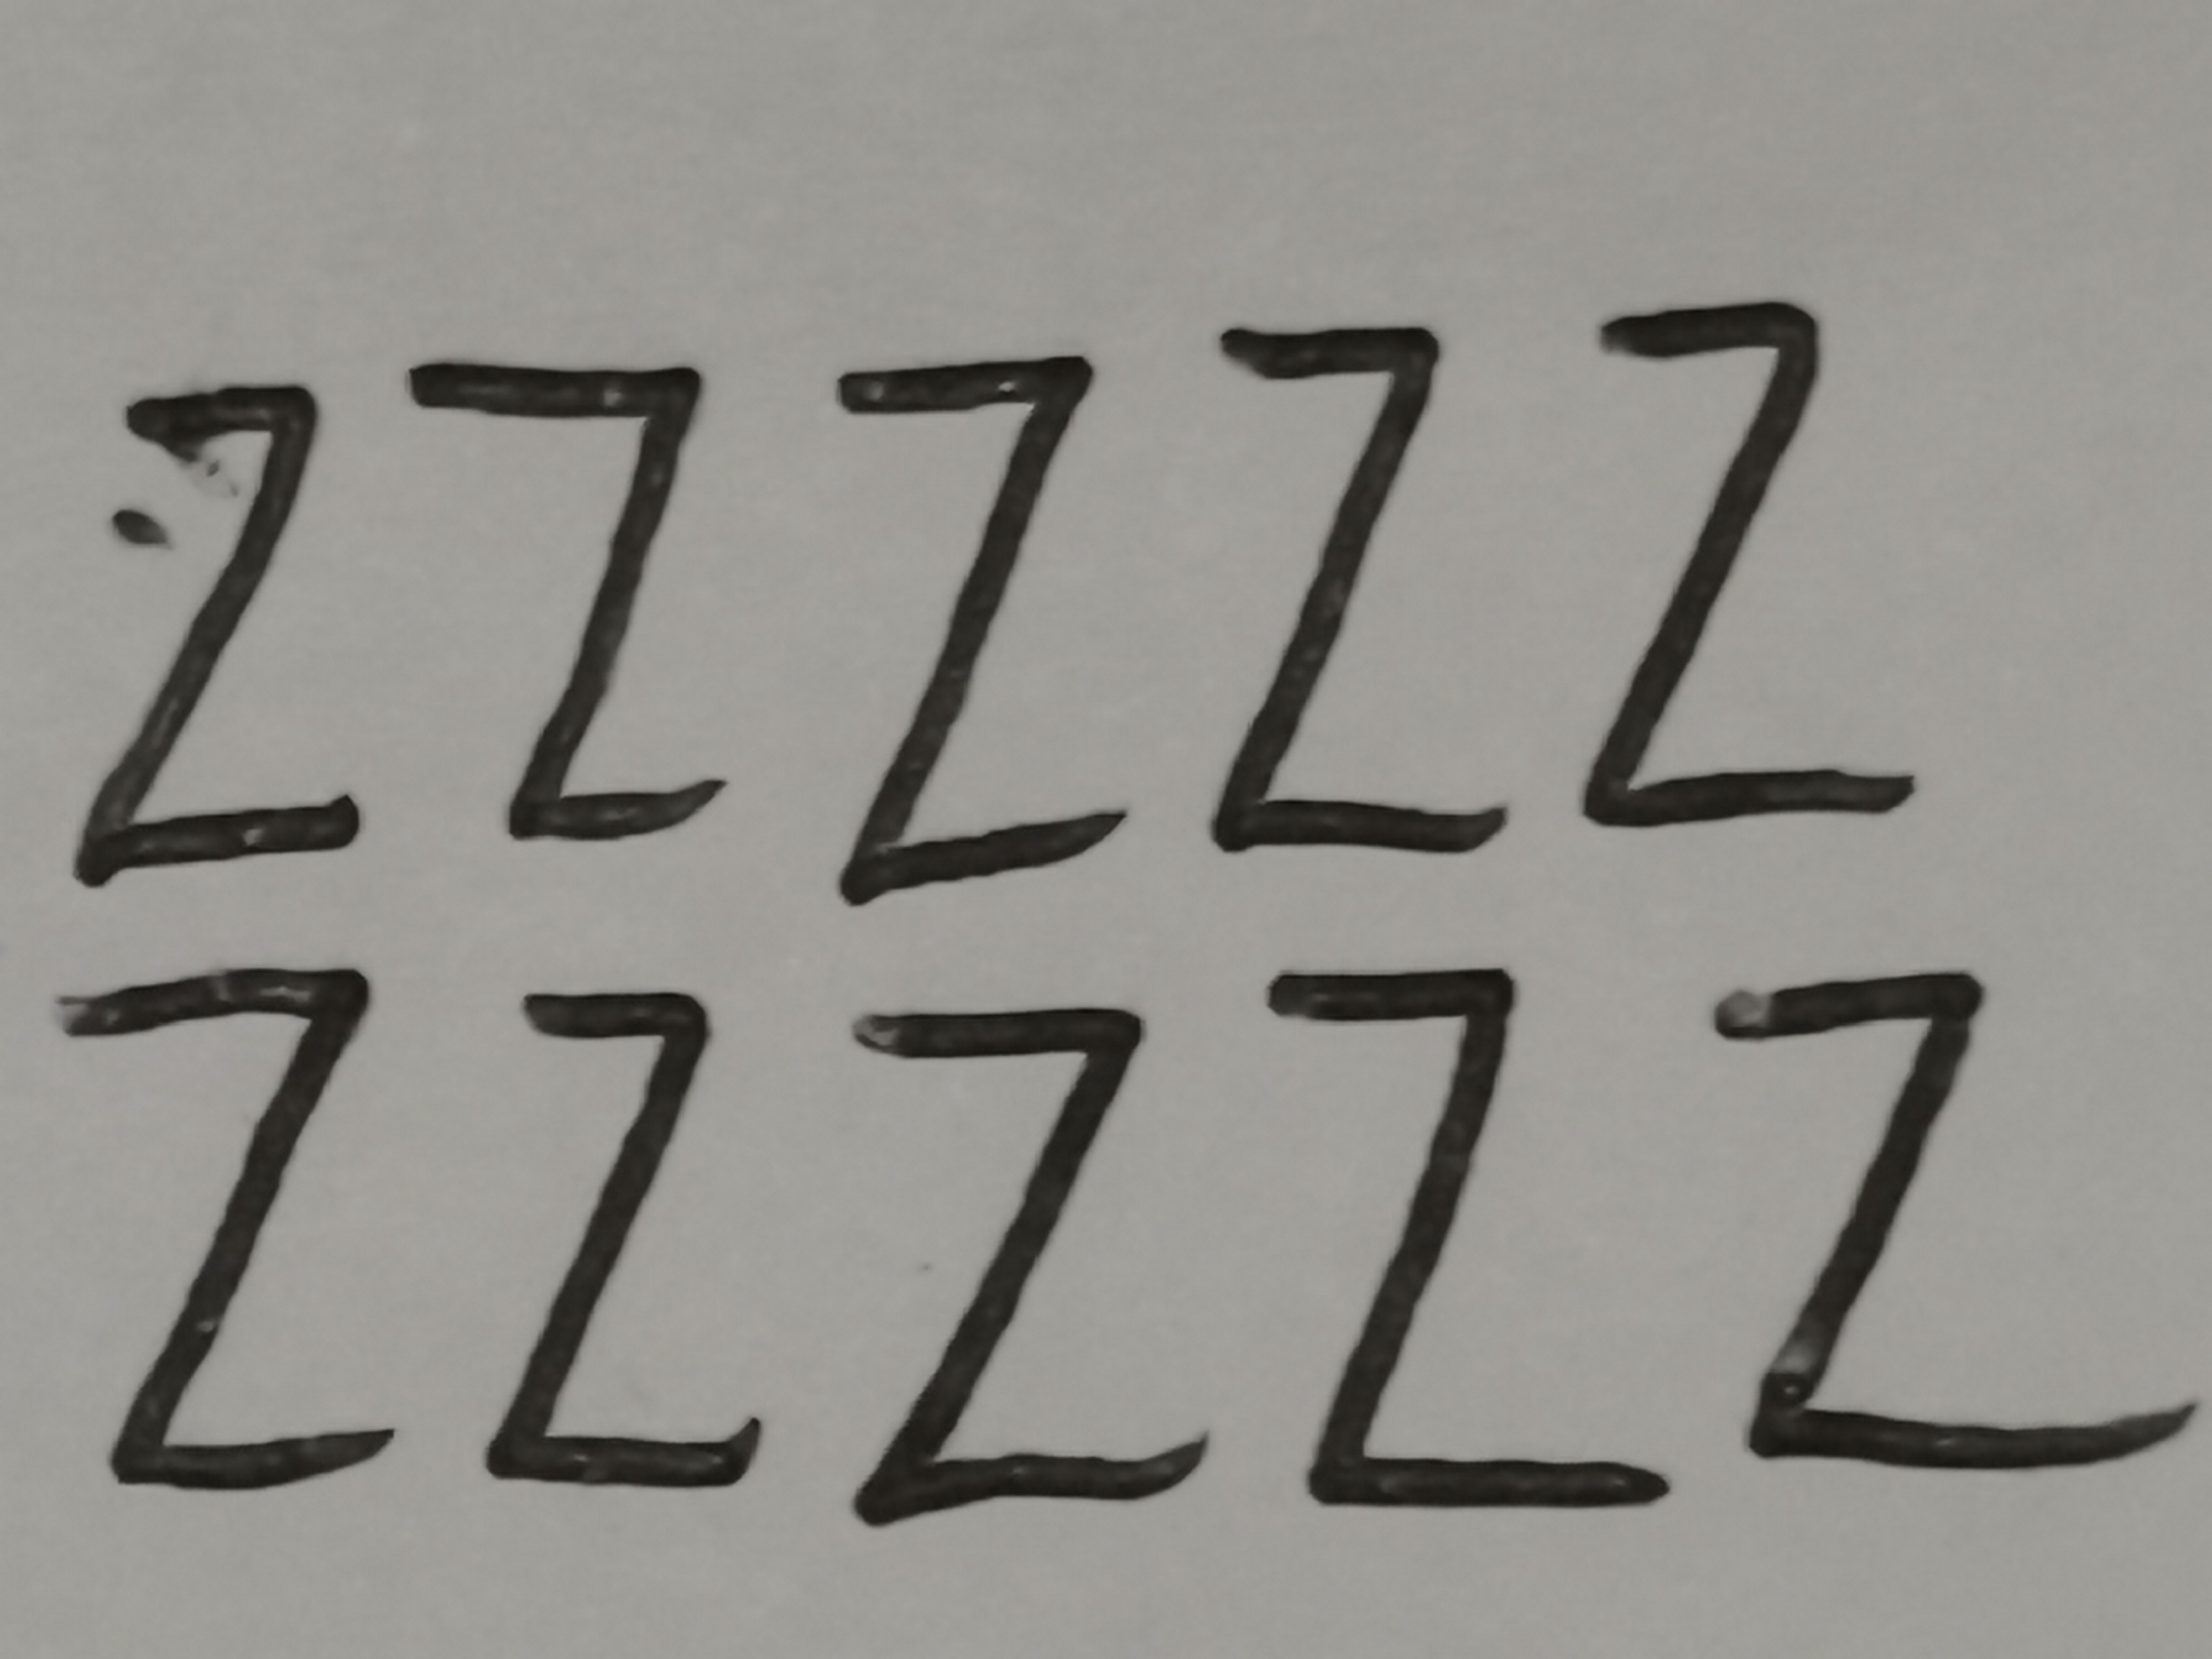 ZZZZZ
ZZZZZ